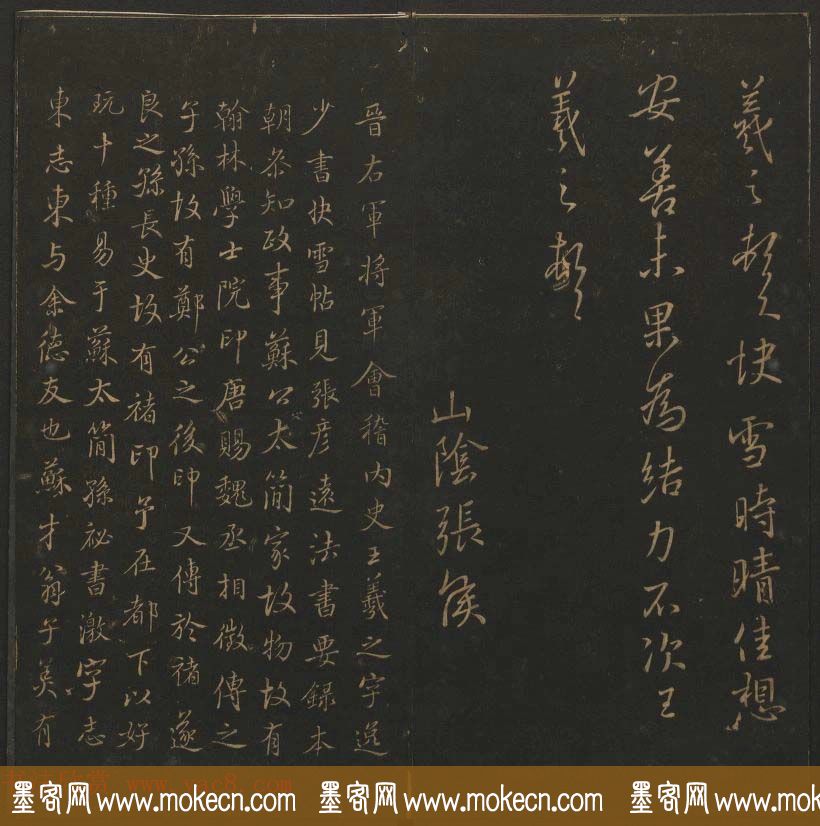 羲之頓首快雪時晴佳想
安善未果為結力不次王
羲之頓首
山陰張侯
晉右軍將軍會稽內史王羲之字逸
少書快雪帖見張彥遠法書要錄本
朝參知政事蘇公太簡家故物故有
翰林學士院印唐賜魏丞相徵傳之
子孫故有鄭公之後印又傳於褚遂
良之孫長史故有褚印予在都下以好
玩十種易于蘇太簡孫祕書激字志
東志東与余德友也蘇才翁子美有
www.yac8.com
墨客网 www.mokecn.com 墨客网 www.mokecn.com 墨客网 www.mokecn.